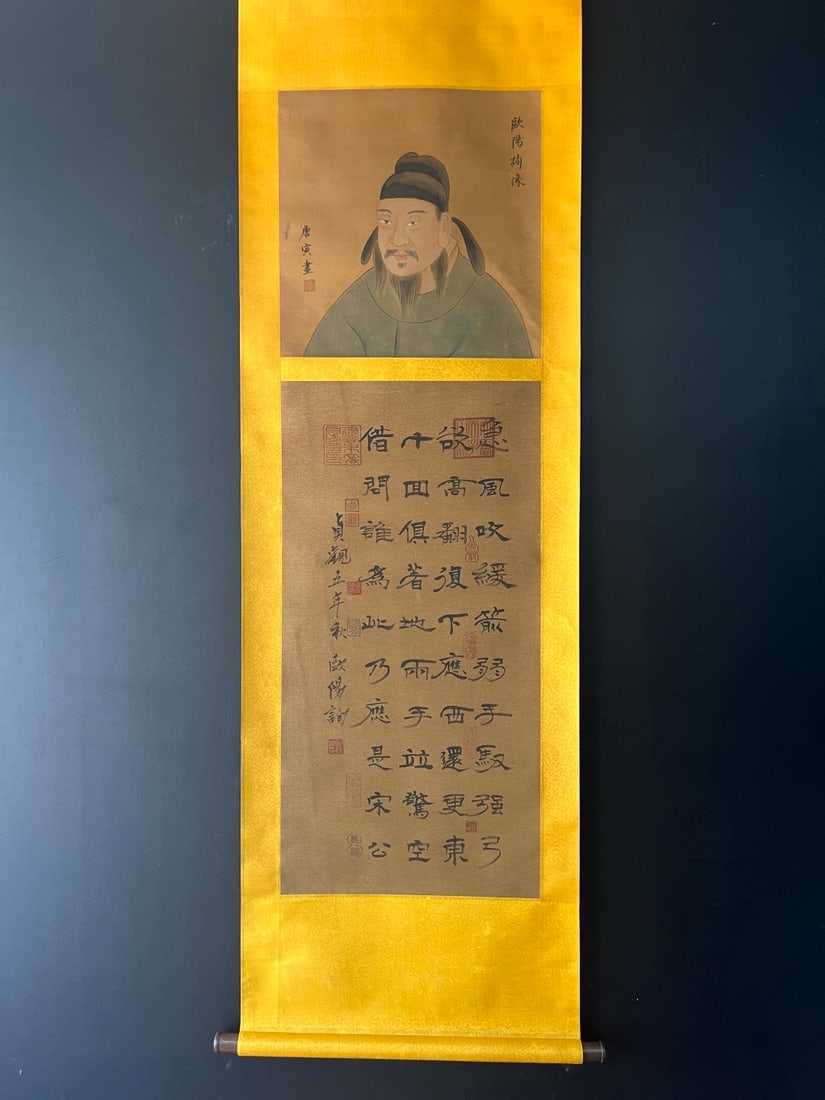 歐陽詢像
唐寅畫
急風吹緩箭弱手馭强弓
欲高翻復下應西還更東
十回俱著地兩手並擎空
借問誰為此乃應是宋公
貞觀五年秋歐陽詢